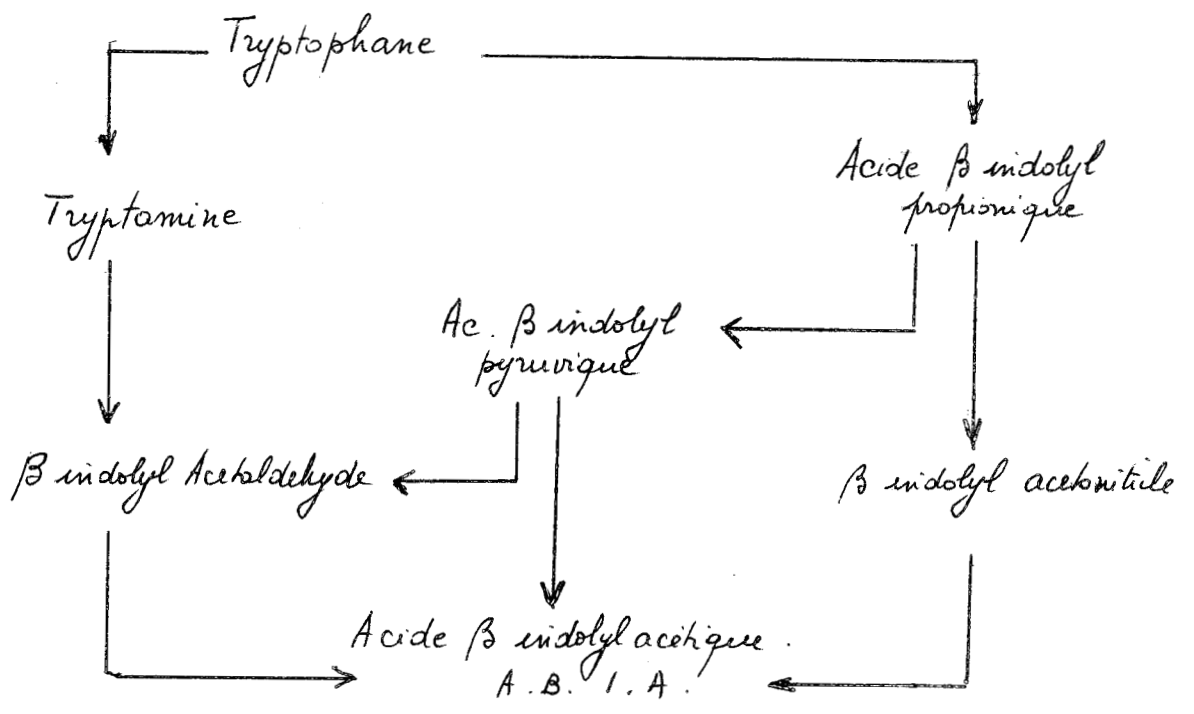 Tryptophane
Acide β indolyl
propionique
Tryptamine
Ac. β indolyl
pyruvique
β indolyl Acétaldehyde
β indolyl acetonitrile
Acide β indolyl acétique.
A.B.I.A.